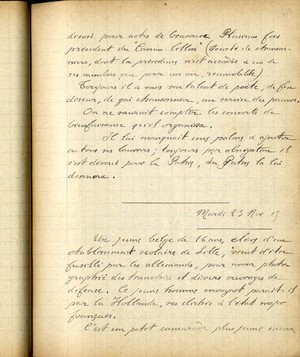 décoré pour actes de bravoure. Plusieurs fois
président du "Caveau Lillois" (Société de chansonniers,
dont la présidence n'est accordée à un de
ses membres que pour un an, renouvelable)
Toujours il a mis son talent de poète, de
diseur, de gai chansonnier, au service du pauvre.
On ne saurait compter les concerts de
bienfaisance qu'il organisa.
Il lui manquait une palme à ajouter
à tous ses lauriers; toujours par abnégation il
s'est dévoué pour la Patrie, la Patrie la lui
donnera.
Mardi 23 Nov 15
Un jeune belge de 16 ans, élève d'un
établissement scolaire de Lille, vient d'être
fusillé par les allemands, pour avoir photographié
des tranchées et divers ouvrages de
défense. Ce jeune homme envoyait paraît-il
par la Hollande, ses clichés à l'état major
français.
C'est un petit camarade plus jeune encore